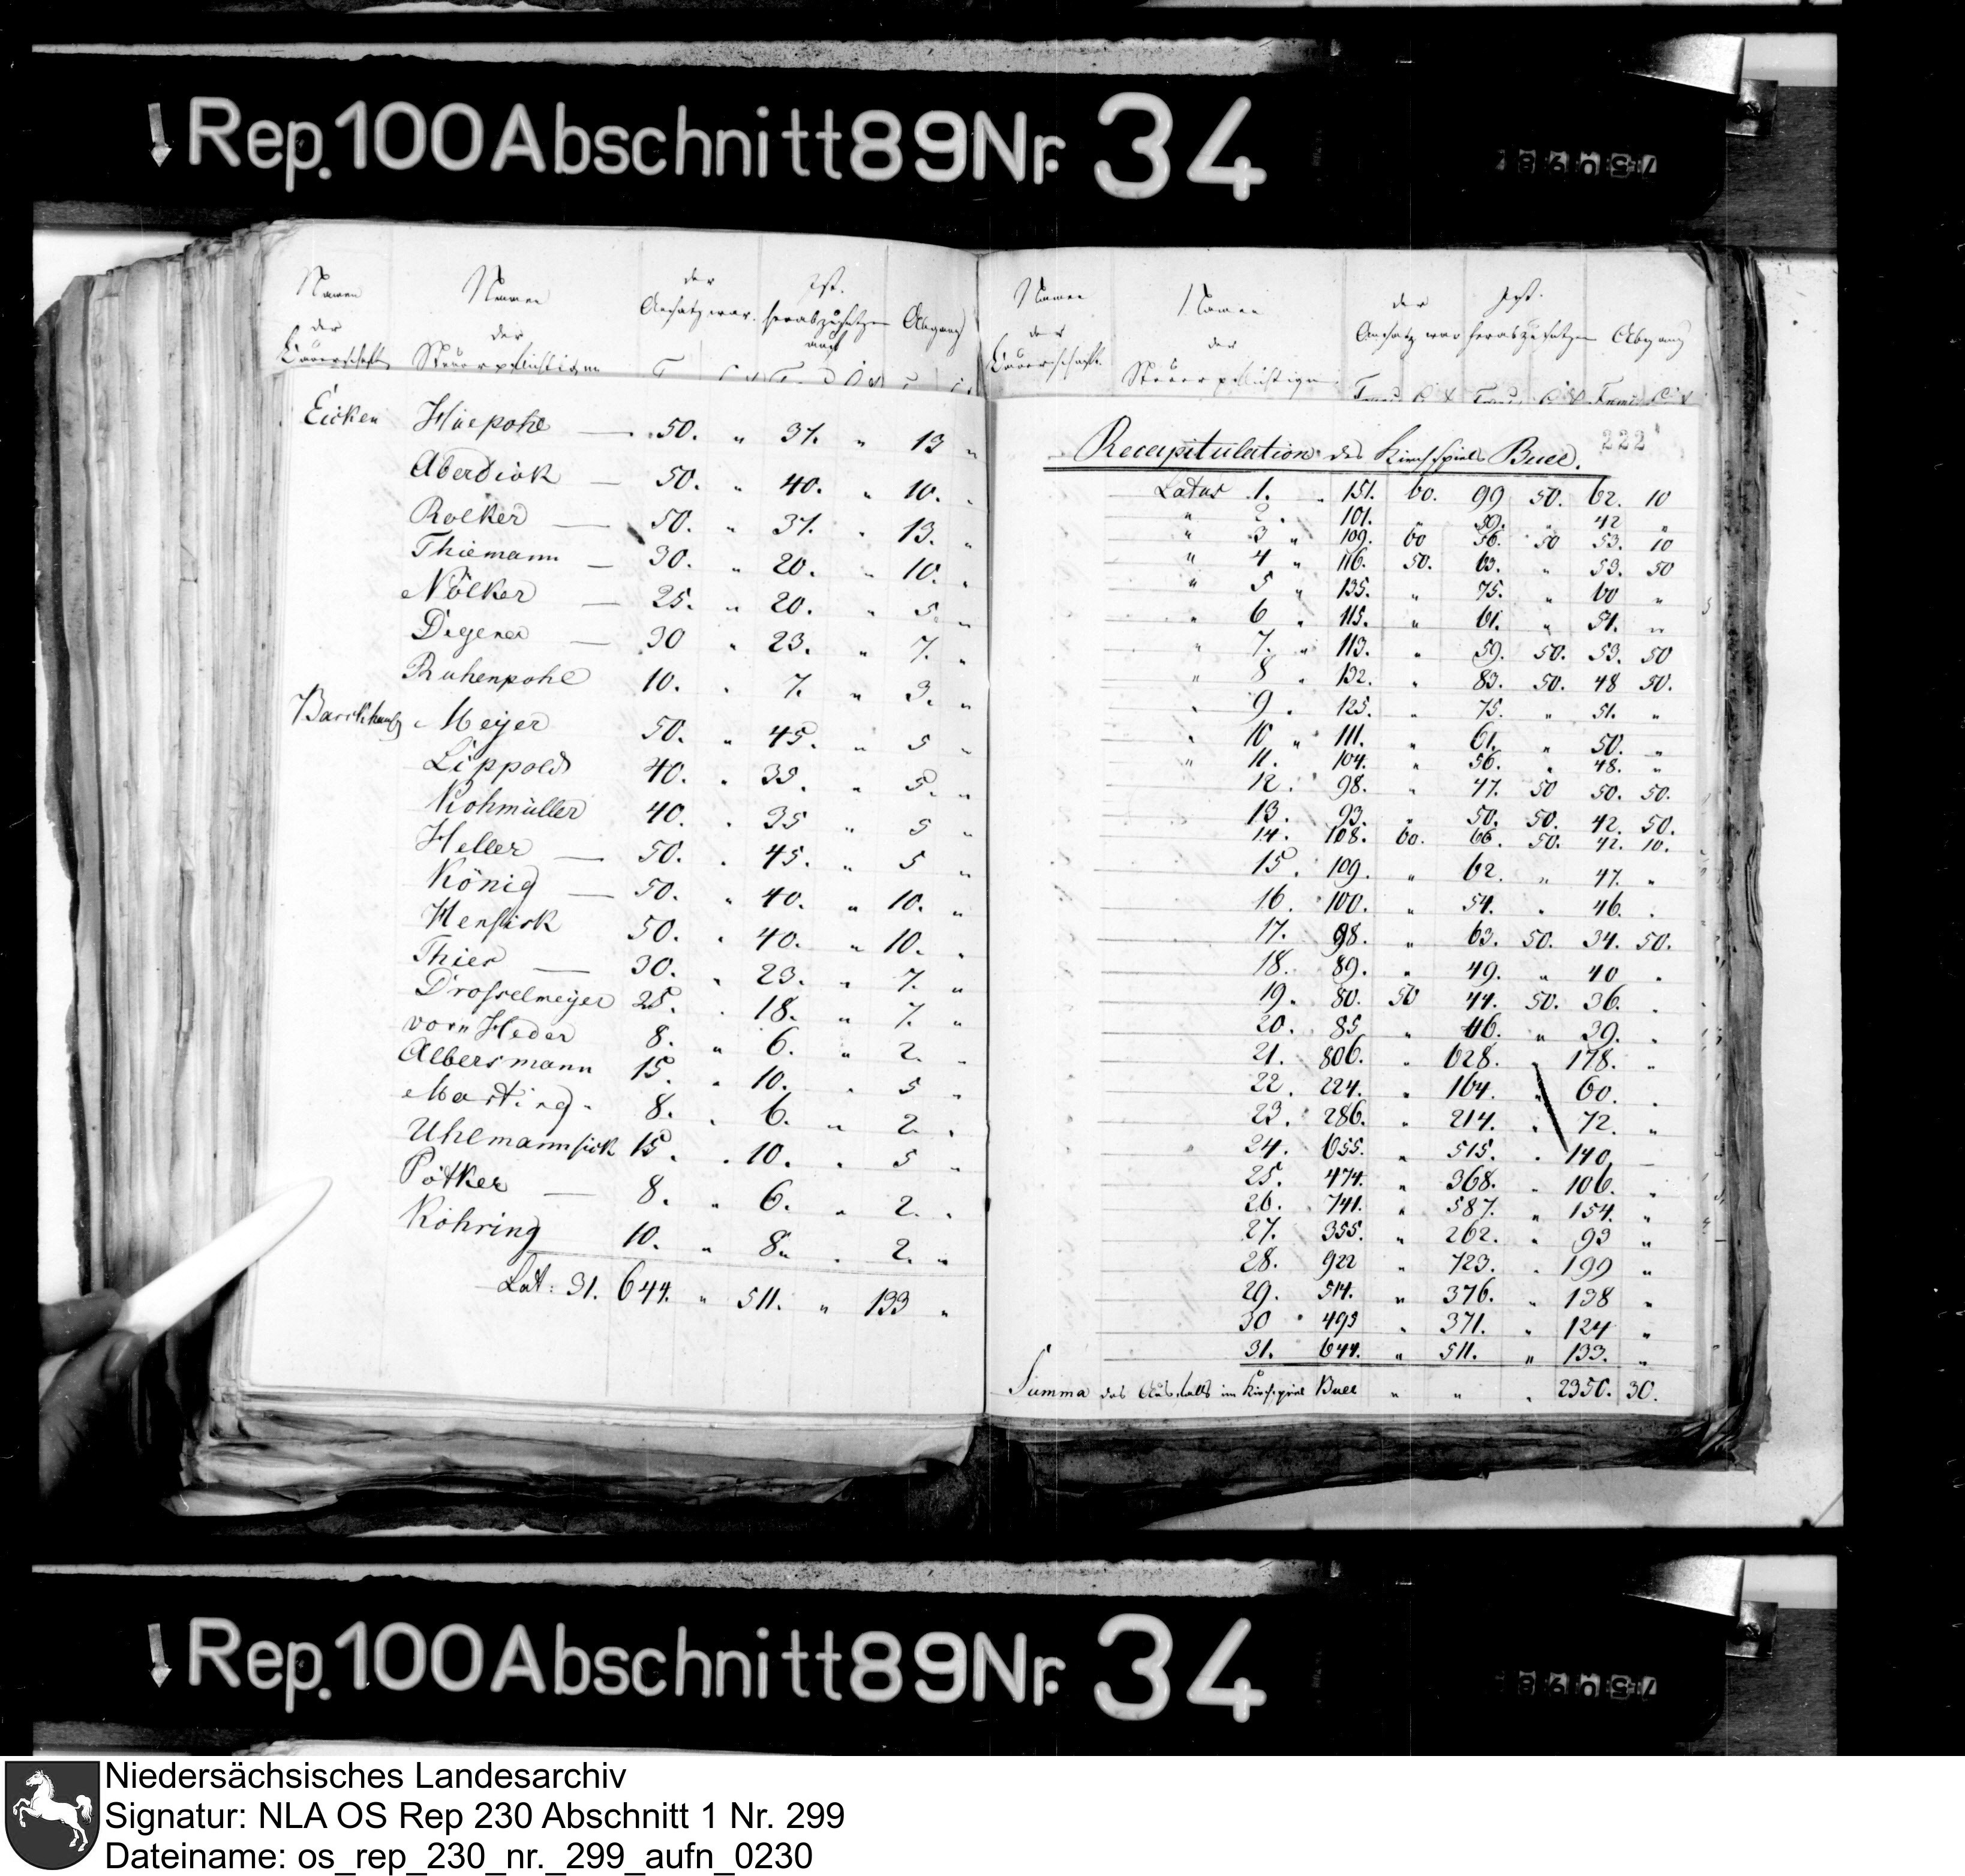 Rep. 100 Abschnitt 89 Nr. 34
Namen der Bauerschaft
Namen der Steuerpflichtigen
der Ansatz war.
Ist. herabzusetzen auf
Abgang
Eicken Hüepohl — 50. " 37. " 13 "
Aberdiek — 50. " 40. " 10. "
Rolker — 50. " 37. " 13. "
Thiemann — 30. " 20. " 10. "
Nölker — 25. " 20. " 5. "
Degener — 30 " 23. " 7. "
Ruhenpohl 10. " 7. " 3. "
Meyer 50. " 45. " 5 "
Lippold 40. " 35. " 5. "
Kohmüller 40. " 35 " 5 "
Heller — 50. " 45. " 5 "
König — 50. " 40. " 10. "
Hensiek 50. " 40. " 10. "
Thier — 30. " 23. " 7. "
Drosselmeyer 25. " 18. " 7. "
vorn Heder 8. " 6. " 2. "
Albersmann 15. " 10. " 5 "
Marting. 8. " 6. " 2. "
Uhlmannsiek 15. " 10. " 5 "
Pötker — 8. " 6. " 2. "
Köhring 10. " 8. " 2. "
Lat: 31. 644. " 511. " 133 "
Namen der Bauerschaft.
Namen der Steuerpflichtigen
der Ansatz war
Ist. herabzusetzen
Abgang
222
Recapitulation des Kirchspiels Buer.
Latus 1. " 151. 60. 99 50. 62. 10
" 2. 101. " 59. " 42 "
" 3 " 109. 60 56. 50 53. 10
" 4 " 116. 50. 63. " 53. 50
" 5 " 135. " 75. " 60 "
" 6 " 115. " 61. " 54. "
" 7. " 113. " 59. 50. 53. 50
" 8 " 132. " 83. 50. 48 50.
" 9 " 125. " 75. " 51. "
" 10 " 111. " 61. " 50. "
" 11. 104. " 56. " 48. "
12. 98. " 47. 50 50. 50.
13. 93. " 50. 50. 42. 50.
14. 108. 60. 66. 50. 42. 10.
15. 109. " 62. " 47. "
16. 100. " 54. " 46. "
17. 98. " 63. 50. 34. 50.
18. 89. " 49. " 40 "
19. 80. 50 44. 50. 36. "
20. 85 " 46. " 39. "
21. 806. " 628. " 178. "
22. 224. " 164. " 60. "
23. 286. " 214. " 72. "
24. 655. " 515. " 140 —
25. 474. " 368. " 106. "
26. 741. " 587. " 154. "
27. 355. " 262. " 93 "
28. 922 " 723. " 199 "
29. 514. " 376. " 138 "
30 " 495 " 371. " 124 "
31. 644. " 511. " 133. "
Summa des Ausfalls im Kirchspiel Buer " " " 2350. 30.
Rep. 100 Abschnitt 89 Nr. 34
Niedersächsisches Landesarchiv
Signatur: NLA OS Rep 230 Abschnitt 1 Nr. 299
Dateiname: os_rep_230_nr._299_aufn_0230